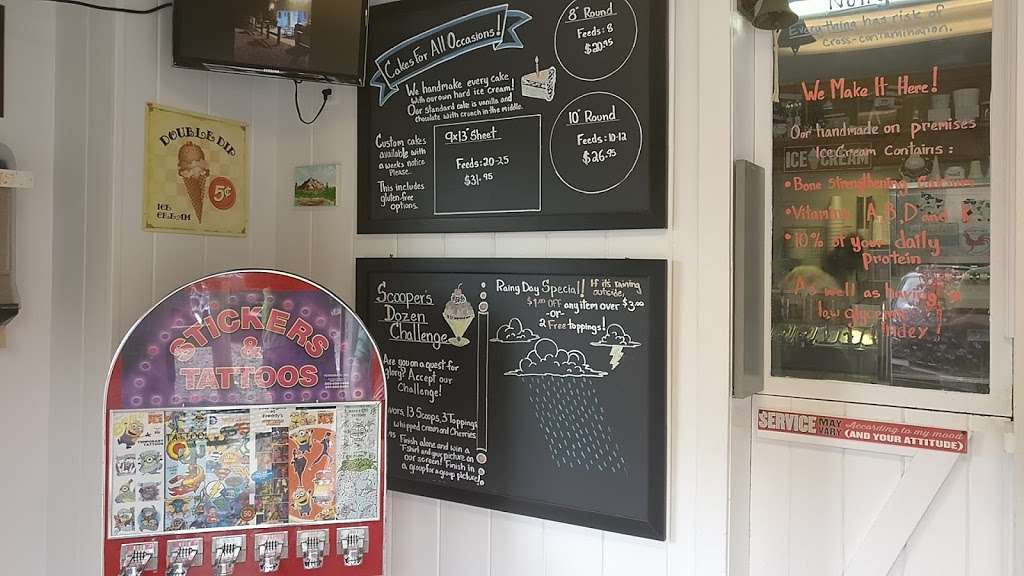 DOUBLE DIP
5¢
ICE
CREAM
Cakes For All Occasions!
We handmake every cake
with our own hard ice cream!
Our standard cake is vanilla and
chocolate with crunch in the middle.
Custom cakes
available with
a weeks notice
Please...
This includes
gluten-free
options.
9x13" Sheet
Feeds: 20-25
$31.95
8" Round
Feeds: 8
$20.95
10" Round
Feeds: 10-12
$26.95
Scooper's
Dozen
Challenge
Are you on a quest for
glory? Accept our
Challenge!
13 Scoops, 3 Toppings
whipped cream and Cherries
.95
Finish alone and win a
T-shirt and your picture on
our screen! Finish in
a group for a group picture!
Rainy Day Special! If it's raining
outside,
$1.00 OFF any item over $3.00
-or-
2 Free toppings!
STICKERS
&
TATTOOS
Everything has risk of
cross-contamination.
We Make It Here!
Our handmade on premises
Ice Cream Contains:
ICE CREAM
• Bone Strengthening
• Vitamins A, B, D and
• 10% of your daily
protein
As well as having a
low glycemic
index!
SERVICE MAY VARY According to my mood
(AND YOUR ATTITUDE)